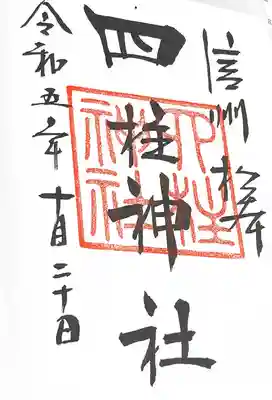 信州松本
四柱神社
令和五年十月二十日
四柱神社